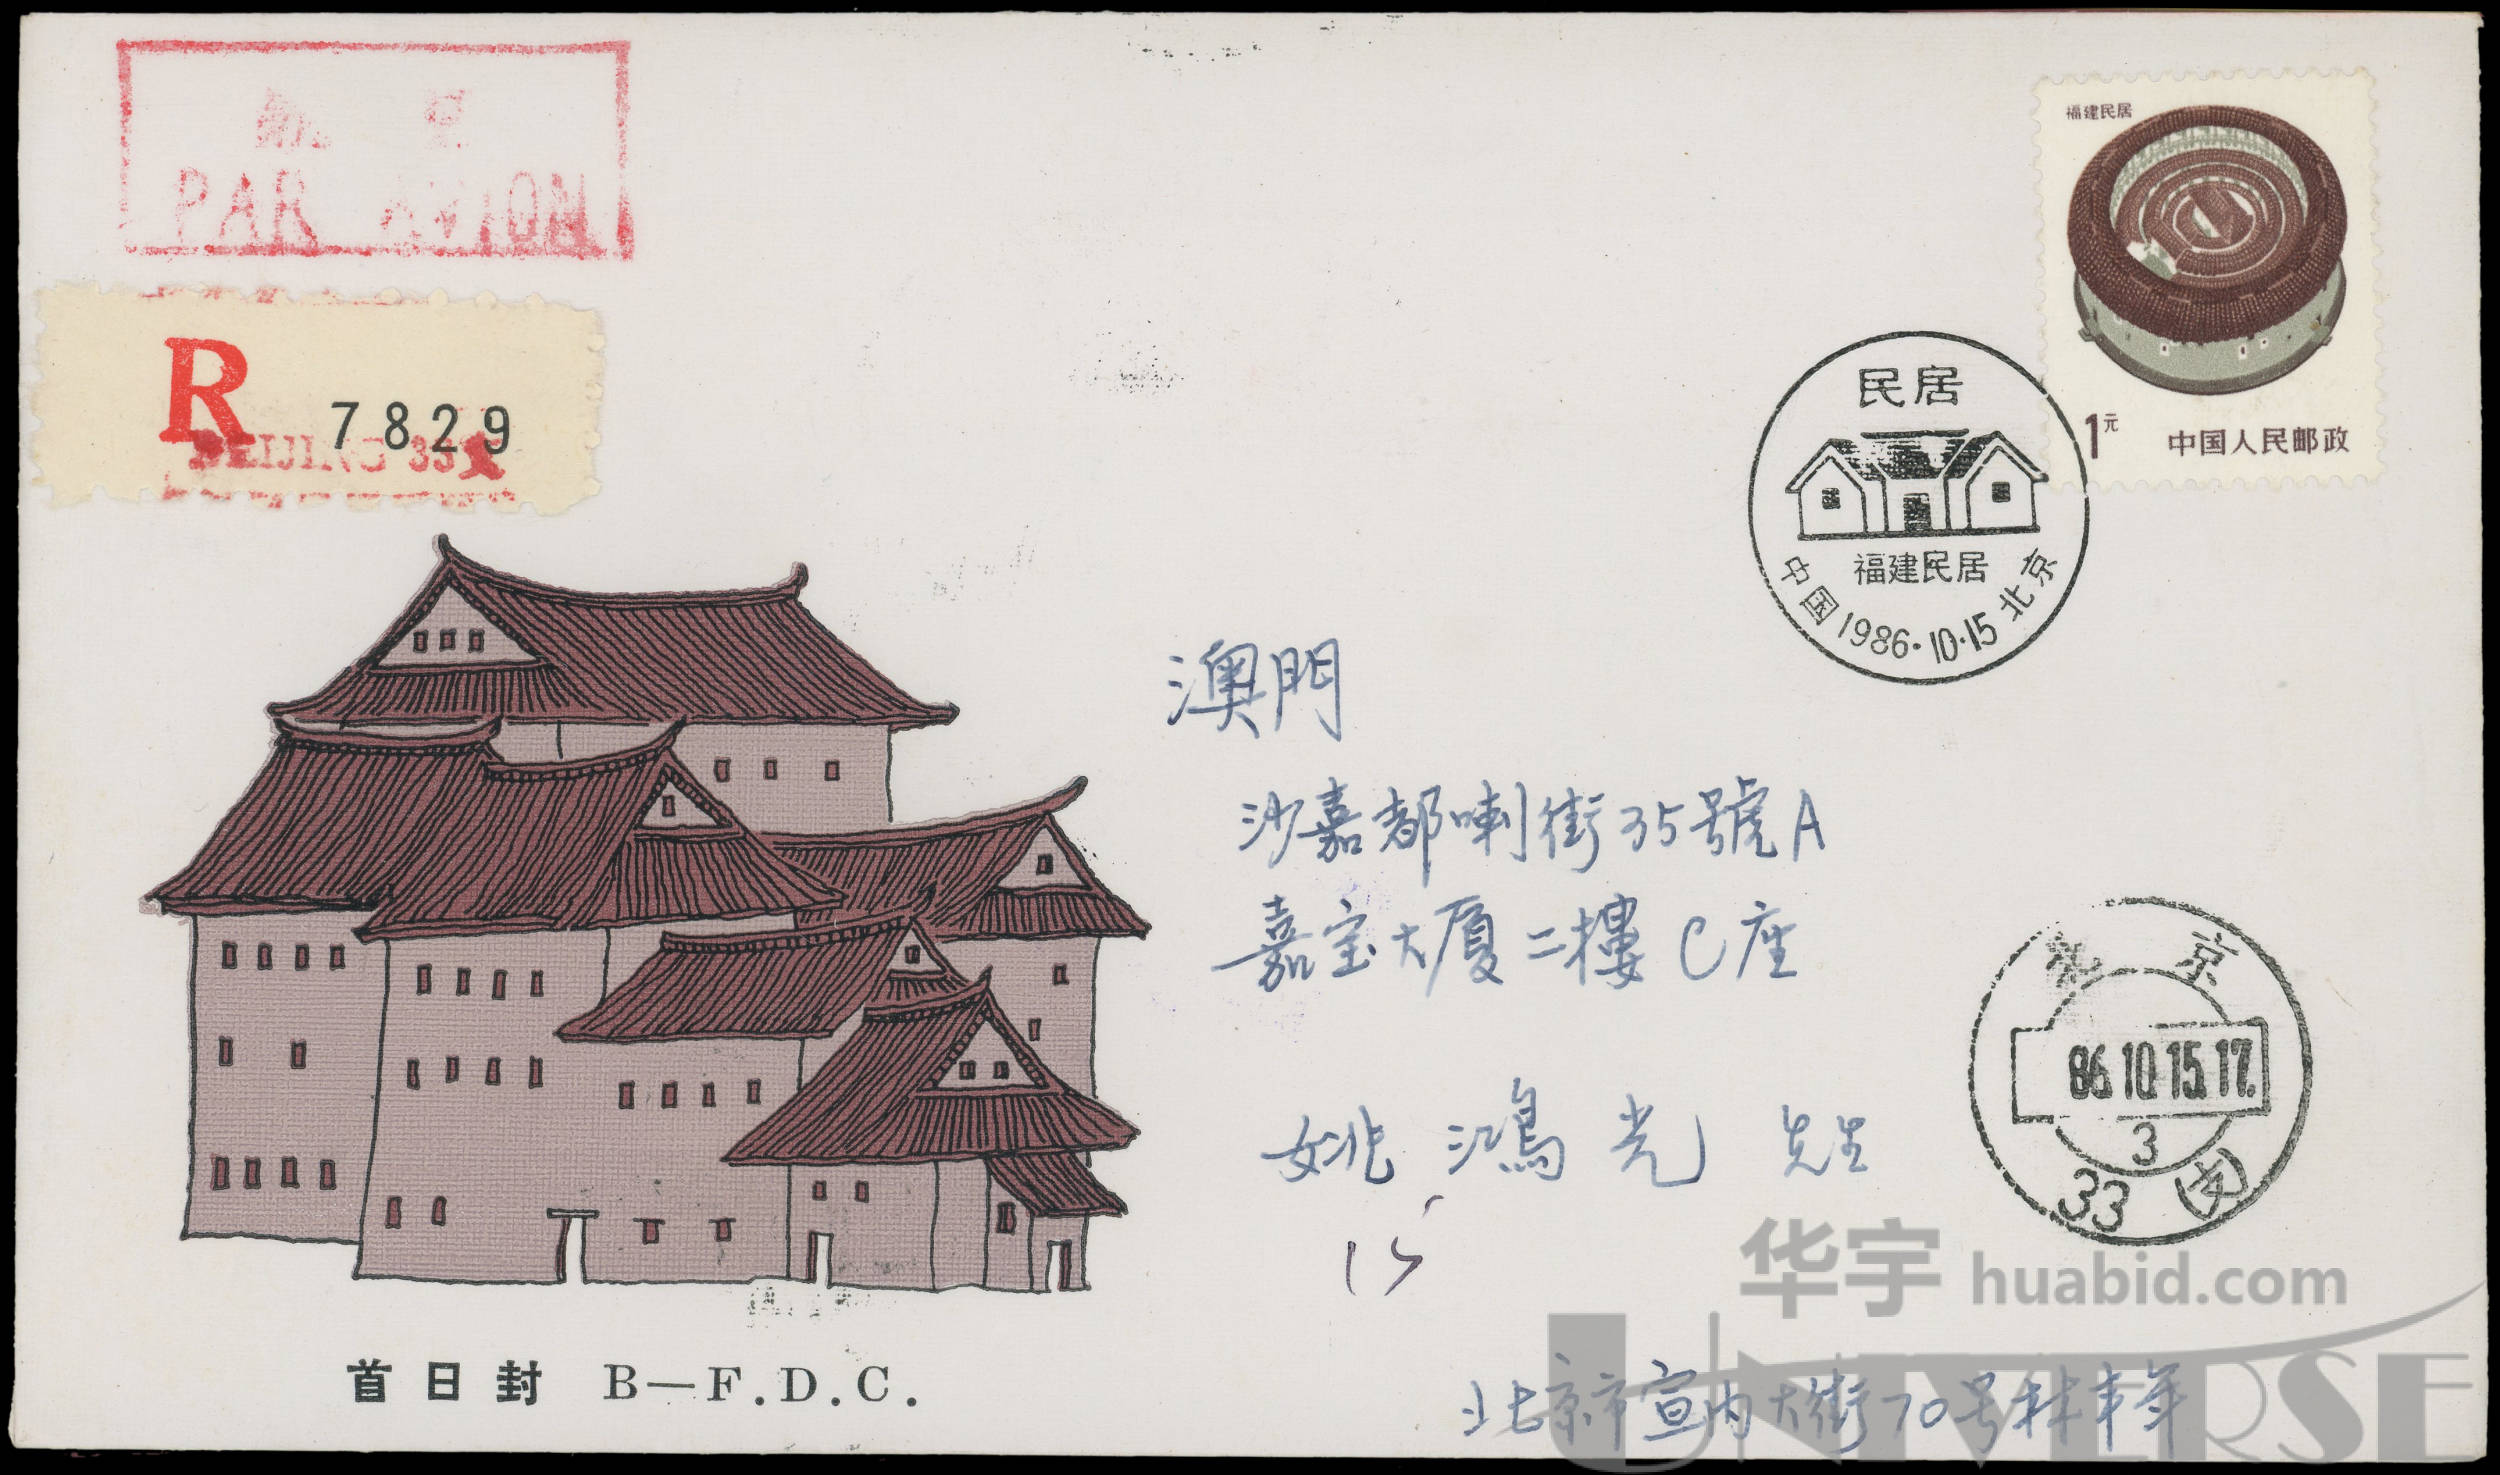 PAR AVION
福建民居
R
7829
BEIJING 33
1元
中国人民邮政
民居
福建民居
中国 1986.10.15 北京
澳門
沙嘉都喇街35號A
嘉宝大廈二樓C座
姚鴻光 先生
15
京
86.10.15.17.
3
33
华宇 huabid.com
UNIVERSE
首日封 B—F.D.C.
北京市宣内大街70号林丰年